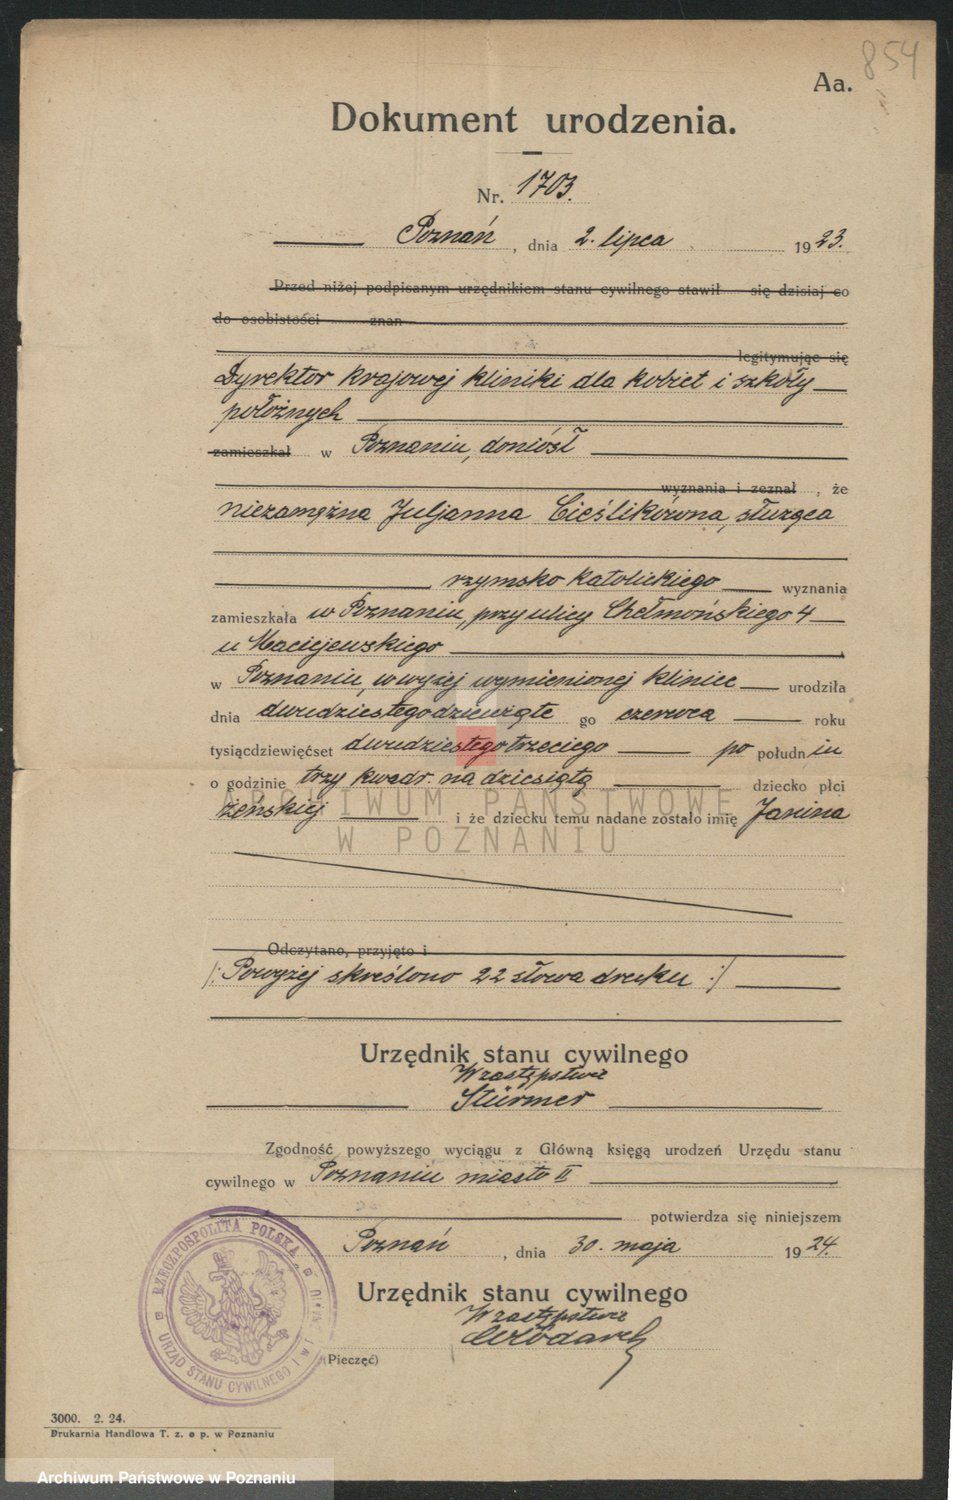 854
Aa.
Dokument urodzenia.
Nr. 1703.
Poznań, dnia 2. lipca 1923.
Przed niżej podpisanym urzędnikiem stanu cywilnego stawił się dzisiaj co
do osobistości znan
legitymując się
Dyrektor krajowej kliniki dla kobiet i szkoły
położnych
zamieszkał w Poznaniu, doniósł
wyznania i zeznał, że
niezamężna Juljanna Cieślikówna, służąca
rzymsko katolickiego wyznania
zamieszkała w Poznaniu, przy ulicy Chełmońskiego 4
u Maciejewskiego
w Poznaniu, w wyżej wymienionej klinice urodziła
dnia dwudziestegodziewiąte go czerwca roku
tysiącdziewięćset dwudziestegotrzeciego po południu
o godzinie trzy kwadr. na dziesiątą dziecko płci
żeńskiej i że dziecku temu nadane zostało imię Janina
ARCHIWUM PAŃSTWOWE
W POZNANIU
Odczytano, przyjęto i
/: Powyżej skreślono 22 słowa druku :/
Urzędnik stanu cywilnego
W zastępstwie
Stürmer
Zgodność powyższego wyciągu z Główną księgą urodzeń Urzędu stanu
cywilnego w Poznaniu miasto II
potwierdza się niniejszem
Poznań, dnia 30. maja 1924.
Urzędnik stanu cywilnego
W zastępstwie
(Pieczęć)
RZECZPOSPOLITA POLSKA
URZĄD STANU CYWILNEGO
3000. 2. 24.
Drukarnia Handlowa T. z. o p. w Poznaniu
Archiwum Państwowe w Poznaniu